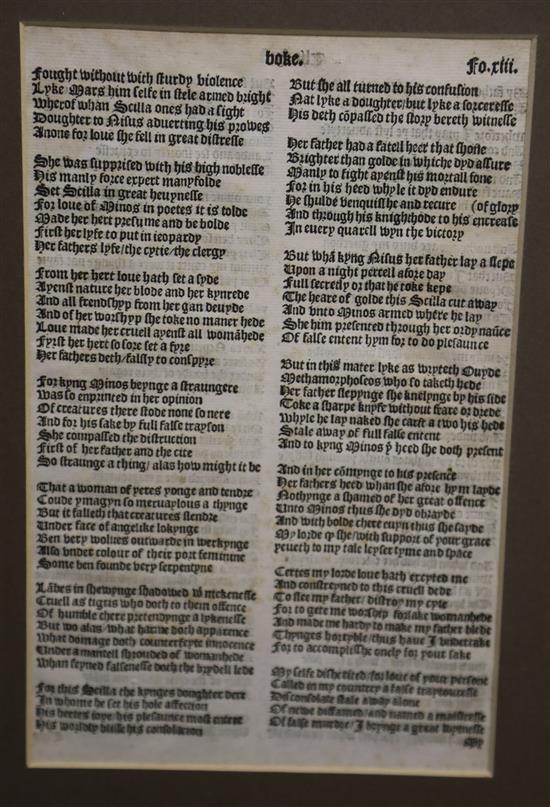 boke.
Fo.xiii.
Fought without with sturdy violence
Lyke Mars him selfe in stele armed bright
Wherof whan Scilla ones had a sight
Doughter to Nisus aduerting his prowes
Anone for loue she fell in great distresse
She was supprised with his high noblesse
His manly force expert manyfolde
Set Scilla in great heuynesse
For loue of Minos in poetes it is tolde
Made her hert presume and be bolde
First her lyfe to put in ieopardy
Her fathers lyfe/the cytie/the clergy
From her hert loue hath set a syde
Ayenst nature her blode and her kynrede
And all frendshyp from her gan deuyde
And of her worshyp she toke no maner hede
Loue made her cruell ayenst all womāhede
Fyrst her hert so sore set a fyre
Her fathers deth/falsly to conspyre
For kyng Minos beynge a straungere
Was so enprinted in her opinion
Of creatures there stode none so nere
And for his sake by full false trayson
She compassed the distruction
First of her father and the cite
So straunge a thing/alas how might it be
That a woman of yeres yonge and tendre
Coude ymagyn so meruaylous a thynge
But it falleth that creatures slendre
Under face of angelike lokynge
Ben very wolues outwarde in werkynge
Also vnder colour of their port feminine
Some ben founde very serpentyne
Lābes in shewynge shadowed wͭ mekenesse
Cruell as tigris who doth to them offence
Of humble chere pretendynge a lykenesse
But wo alas/what harme doth apparence
What domage doth counterfeyte innocence
Under a mantell shrouded of womanhede
Whan feyned falsenesse doth the brydell lede
For this Scilla the kynges doughter dere
In whome he set his hole affection
His hertes ioye/his plesaunce most entere
His worldly blisse his consolacion
But she all turned to his confusion
Nat lyke a doughter/but lyke a sorceresse
His deth cōpassed the story bereth witnesse
Her father had a fatell heer that shone
Brighter than golde in whiche dyd assure
Manly to fight ayenst his mortall fone
For in his heed whyle it dyd endure
He shulde venquisshe and recure (of glory
And through his knighthode to his encrease
In euery quarell wyn the victory
But whā kyng Nisus her father lay a slepe
Upon a night percell afore day
Full secretly or that he toke kepe
The heare of golde this Scilla cut away
And vnto Minos armed where he lay
She him presented through her ordynaūce
Of false entent hym for to do plesaunce
But in this mater lyke as wryteth Ouyde
Methamorphoseos who so taketh hede
Her father slepynge she knelynge by his side
Toke a sharpe knyfe without feare or drede
Whyle he lay naked she carfe a two his hede
Stale away of full false entent
And to kyng Minos yͤ heed she doth present
And in her cōmynge to his presence
Her fathers heed whan she afore hym layde
Nothynge a shamed of her great offence
Unto Minos thus she dyd abrayde
And with bolde chere euyn thus she sayde
My lorde qͥ she/with support of your grace
yeueth to my tale leyser tyme and space
Certes my lorde loue hath excyted me
And constreyned to this cruell dede
To slee my father/distroy my cyte
For to gete me worship forsake womanhede
And made me hardy to make my father blede
Thynges horryble/thus haue I vndertake
For to accomplisshe onely for your sake
My selfe disherited/for loue of your persone
Called in my countrey a false traytouresse
Disconsolate stale away alone
Of newe diffamed/and named a maistresse
Of false murdre/I brynge a great wytnesse
My